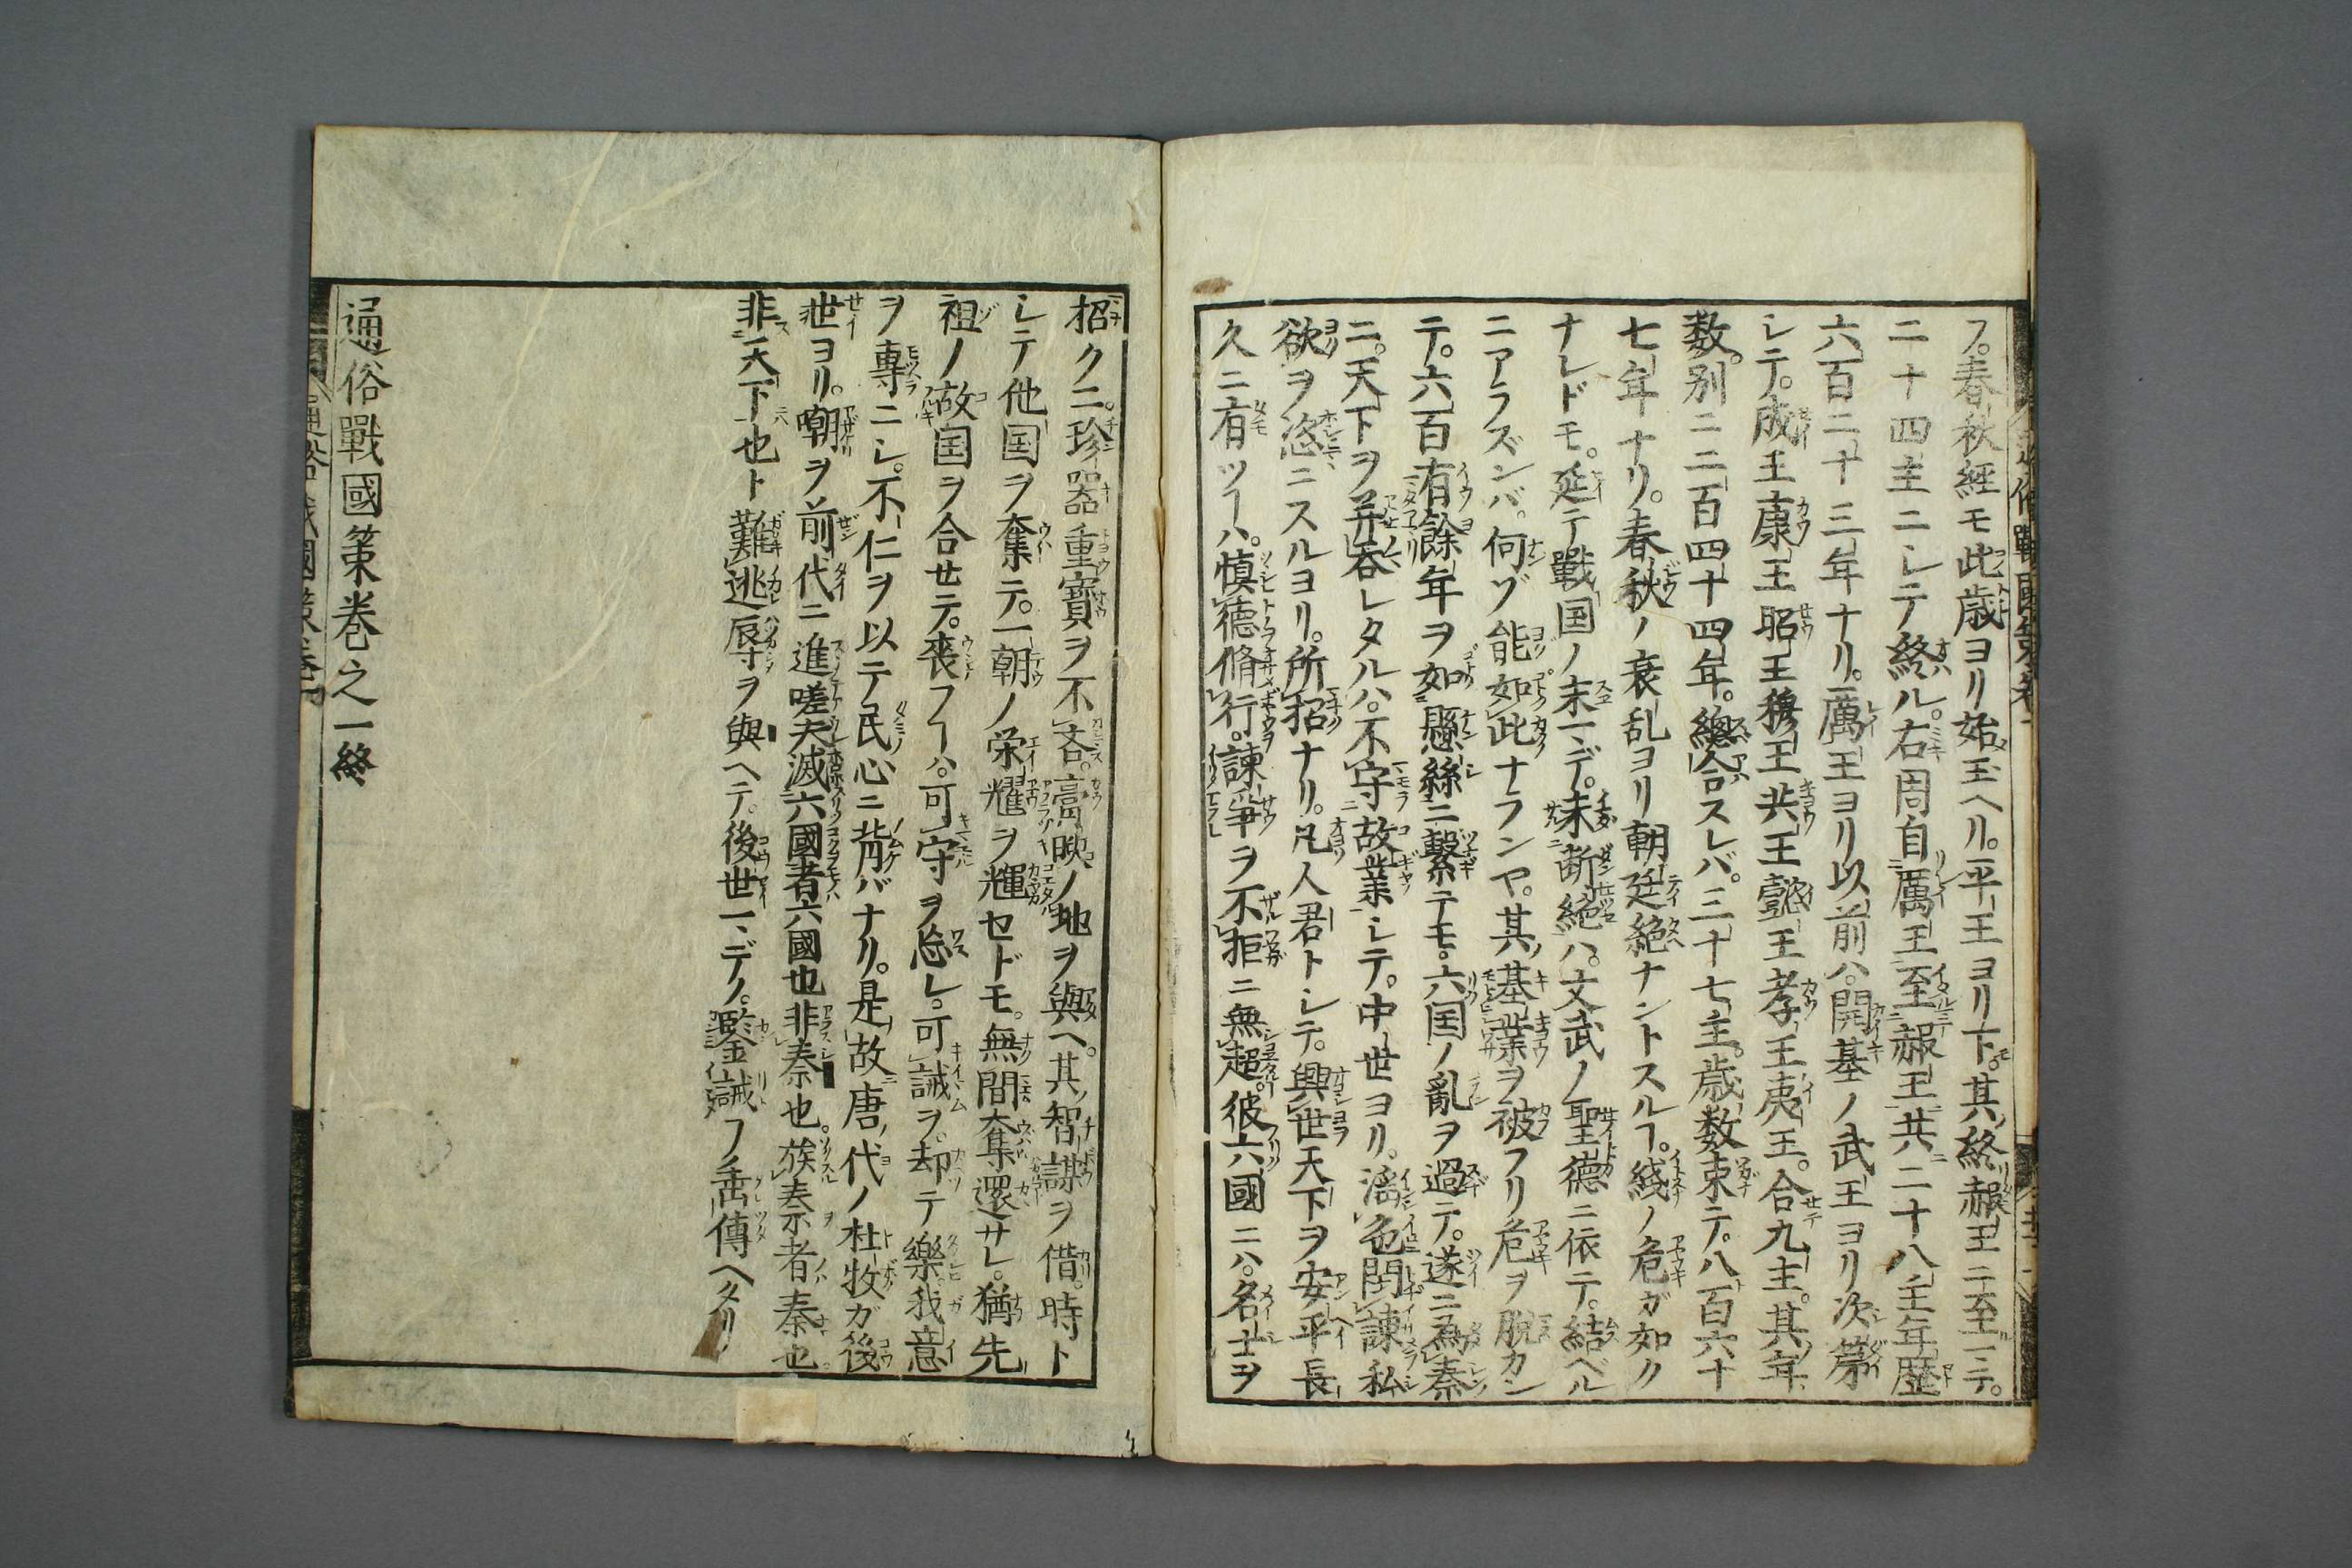 フ。春秋経モ此歳ヨリ始玉ヘリ。平王ヨリ下。其終赧王ニ至一テ。
二十四主ニシテ終ル。右周自厲王至赧王共二十八主年歴
六百二十三年ナリ。厲王ヨリ以前ハ。開基ノ武王ヨリ次第
シテ。成王康王昭王穆王共王懿王孝王夷王。合九主。其年
数。別ニ二百四十四年。總合スレバ。三十七主。歳数束テ。八百六十
七年ナリ。春秋ノ衰乱ヨリ朝廷絶ナントスルヿ。綫ノ危ガ如ク
ナレドモ。延テ戰国ノ末マデ。未断絶ハ。文武ノ聖德ニ依テ。結ベル
ニアラズンバ。何ゾ能如此ナランヤ。其基業ヲ被フリ危ヲ脱カン
テ。六百有餘年ヲ如懸絲ニ繫テモ。六国ノ亂ヲ過テ。遂ニ為秦
ニ。天下ヲ并呑レタルハ。不守故業シテ。中世ヨリ。淫色閉諫私
欲ヲ恣ニスルヨリ。所招ナリ。凡人君トシテ。興世天下ヲ安平長
久ニ有ツヿハ。慎德脩行。諫爭ヲ不拒ニ無超。彼六國ニハ。名士ヲ
招クニ。珍器重寶ヲ不吝。膏腴ノ地ヲ與ヘ。其智謀ヲ借。時ト
シテ他国ヲ奪テ。一朝ノ栄耀ヲ輝セドモ。無間奪還サレ。猶先
祖ノ故国ヲ合セテ。喪フヿハ。可守ヲ怠レ。可誡ヲ。却テ樂我意
ヲ專ニシ。不仁ヲ以テ民心ニ背バナリ。是故唐代ノ杜牧ガ後
世ヨリ。嘲ヲ前代ニ進嗟夫滅六國者六國也非秦也。族秦者秦也
非天下也ト難逃辱ヲ與ヘテ。後世マデノ。鑒誡ヲ垂傳ヘタリ
通俗戰國策卷之一終